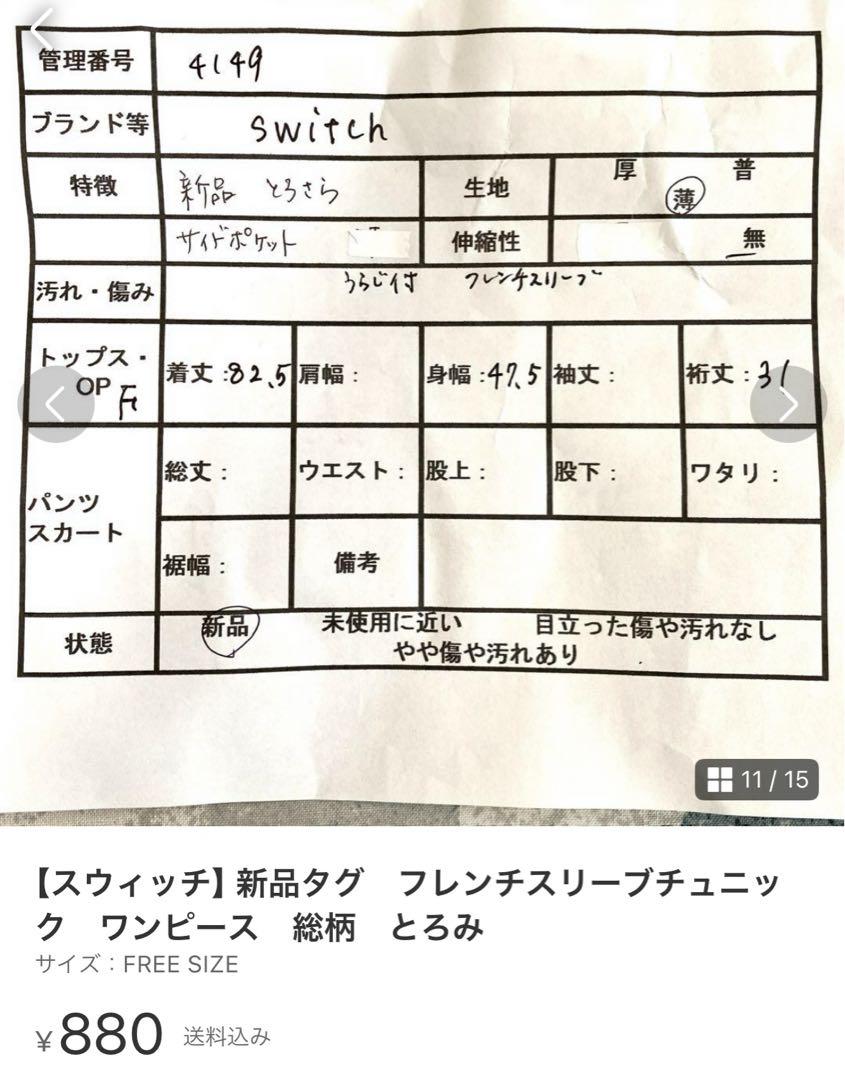 管理番号 4149
ブランド等 switch
特徴 新品 とろさら 生地 厚 薄 普
サイドポケット 伸縮性 無
汚れ・傷み うらじ付 フレンチスリーブ
トップス・OP F 着丈:82.5 肩幅: 身幅:47.5 袖丈: 裄丈:31
パンツ スカート 総丈: ウエスト: 股上: 股下: ワタリ:
裾幅: 備考
状態 新品 未使用に近い 目立った傷や汚れなし
やや傷や汚れあり
11 / 15
【スウィッチ】新品タグ　フレンチスリーブチュニッ
ク　ワンピース　総柄　とろみ
サイズ：FREE SIZE
¥880 送料込み